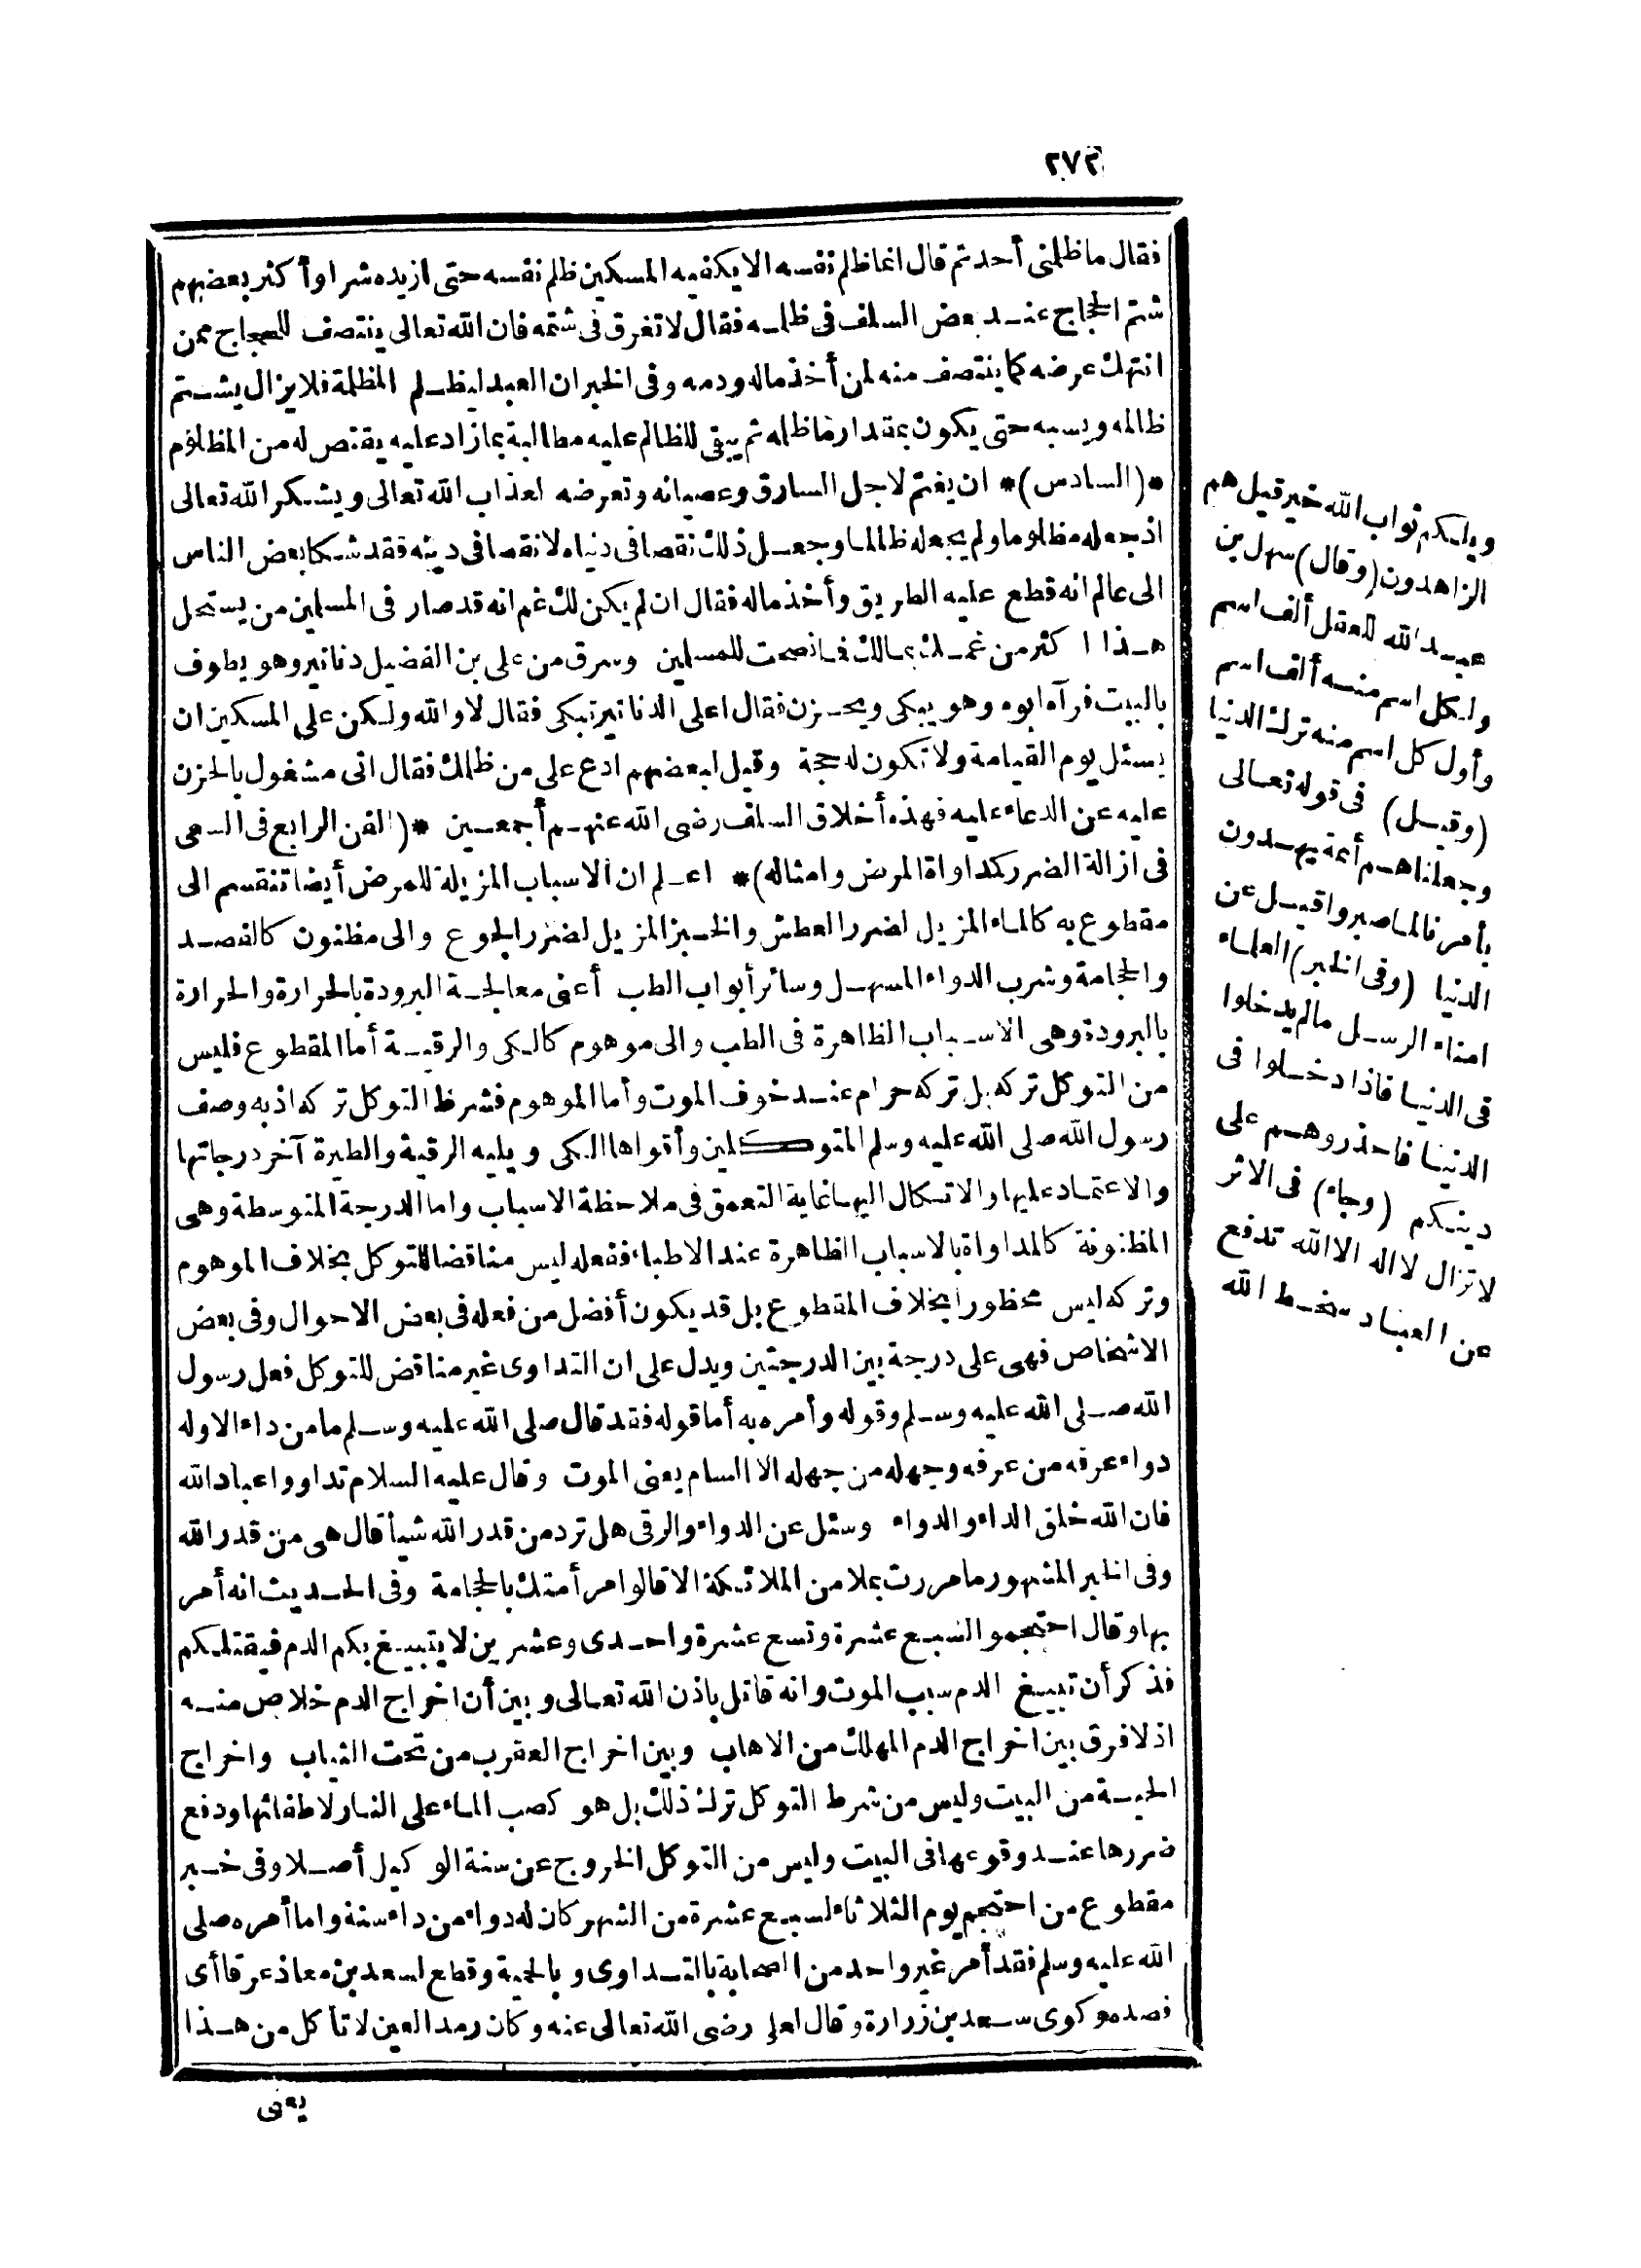 ٢٧٢
فقال ما ظلمنى أحد ثم قال انما ظلم نفسه الا يكفيه المسكين ظلم نفسه حتى ازيده شرا وأكثر بعضهم
شتم الحجاج عند بعض السلف فى ظلمه فقال لا تغرق فى شتمه فان الله تعالى ينتصف للحجاج ممن
انتهك عرضه كما ينتصف منه لمن أخذ ماله ودمه وفى الخبر ان العبد ليظلم المظلمة فلا يزال يشتم
ظالمه ويسبه حتى يكون بمقدار ما ظلمه ثم يبقى للظالم عليه مطالبة بما زاد عليه يقتص له من المظلوم
*(السادس)* ان يغتم لاجل السارق وعصيانه وتعرضه لعذاب الله تعالى ويشكر الله تعالى
اذ جعله مظلوما ولم يجعله ظالما وجعل ذلك نقصا فى دنياه لا نقصا فى دينه فقد شكا بعض الناس
الى عالم انه قطع عليه الطريق وأخذ ماله فقال ان لم يكن لك غم انه قد صار فى المسلمين من يستحل
هذا اكثر من غمك بمالك فما نصحت للمسلمين وسرق من على بن الفضيل دنانير وهو يطوف
بالبيت فرآه ابوه وهو يبكى ويحزن فقال اعلى الدنانير تبكى فقال لا والله ولكن على المسكين ان
يسئل يوم القيامة ولا تكون له حجة وقيل لبعضهم ادع على من ظلمك فقال انى مشغول بالحزن
عليه عن الدعاء عليه فهذه أخلاق السلف رضى الله عنهم أجمعين *(الفن الرابع فى السعى
فى ازالة الضرر كمداواة المرض وامثاله)* اعلم ان الاسباب المزيلة للمرض أيضا تنقسم الى
مقطوع به كالماء المزيل لضرر العطش والخبز المزيل لضرر الجوع والى مظنون كالفصد
والحجامة وشرب الدواء المسهل وسائر أبواب الطب أعنى معالجة البرودة بالحرارة والحرارة
بالبرودة وهى الاسباب الظاهرة فى الطب والى موهوم كالكى والرقية أما المقطوع فليس
من التوكل تركه بل تركه حرام عند خوف الموت وأما الموهوم فشرط التوكل تركه اذ به وصف
رسول الله صلى الله عليه وسلم المتوكلين وأقواها الكى ويليه الرقية والطيرة آخر درجاتها
والاعتماد عليها والاتكال اليها غاية التعمق فى ملاحظة الاسباب واما الدرجة المتوسطة وهى
المظنونة كالمداواة بالاسباب الظاهرة عند الاطباء ففعله ليس مناقضا للتوكل بخلاف الموهوم
وتركه ليس محظورا بخلاف المقطوع بل قد يكون أفضل من فعله فى بعض الاحوال وفى بعض
الاشخاص فهى على درجة بين الدرجتين ويدل على ان التداوى غير مناقض للتوكل فعل رسول
الله صلى الله عليه وسلم وقوله وأمره به أما قوله فقد قال صلى الله عليه وسلم ما من داء الا وله
دواء عرفه من عرفه وجهله من جهله الا السام يعنى الموت وقال عليه السلام تداووا عباد الله
فان الله خلق الداء والدواء وسئل عن الدواء والرقى هل ترد من قدر الله شيأ قال هى من قدر الله
وفى الخبر المشهور ما مررت بملا من الملائكة الا قالوا مر أمتك بالحجامة وفى الحديث انه أمر
بها وقال احتجموا لسبع عشرة وتسع عشرة واحدى وعشرين لا يتبيغ بكم الدم فيقتلكم
فذكر أن تبيغ الدم سبب الموت وانه قاتل باذن الله تعالى وبين أن اخراج الدم خلاص منه
اذ لا فرق بين اخراج الدم المهلك من الاهاب وبين اخراج العقرب من تحت الثياب واخراج
الحية من البيت وليس من شرط التوكل ترك ذلك بل هو كصب الماء على النار لاطفائها ودفع
ضررها عند وقوعها فى البيت وليس من التوكل الخروج عن سنة الوكيل أصلا وفى خبر
مقطوع من احتجم يوم الثلاثاء لسبع عشرة من الشهر كان له دواء من داء سنة واما أمره صلى
الله عليه وسلم فقد أمر غير واحد من الصحابة بالتداوى وبالحمية وقطع لسعد بن معاذ عرقا أى
فصده وكوى سعد بن زرارة وقال لعلى رضى الله تعالى عنه وكان رمد العين لا تأكل من هذا
يعنى
ويلكم ثواب الله خير قيل هم
الزاهدون (وقال) سهل بن
عبد الله للعقل ألف اسم
ولكل اسم منه ألف اسم
وأول كل اسم منه ترك الدنيا
(وقيل) فى قوله تعالى
وجعلناهم أئمة يهدون
بأمرنا لما صبروا قيل عن
الدنيا (وفى الخبر) العلماء
امناء الرسل مالم يدخلوا
فى الدنيا فاذا دخلوا فى
الدنيا فاحذروهم على
دينكم (وجاء) فى الاثر
لا تزال لا اله الا الله تدفع
عن العباد سخط الله